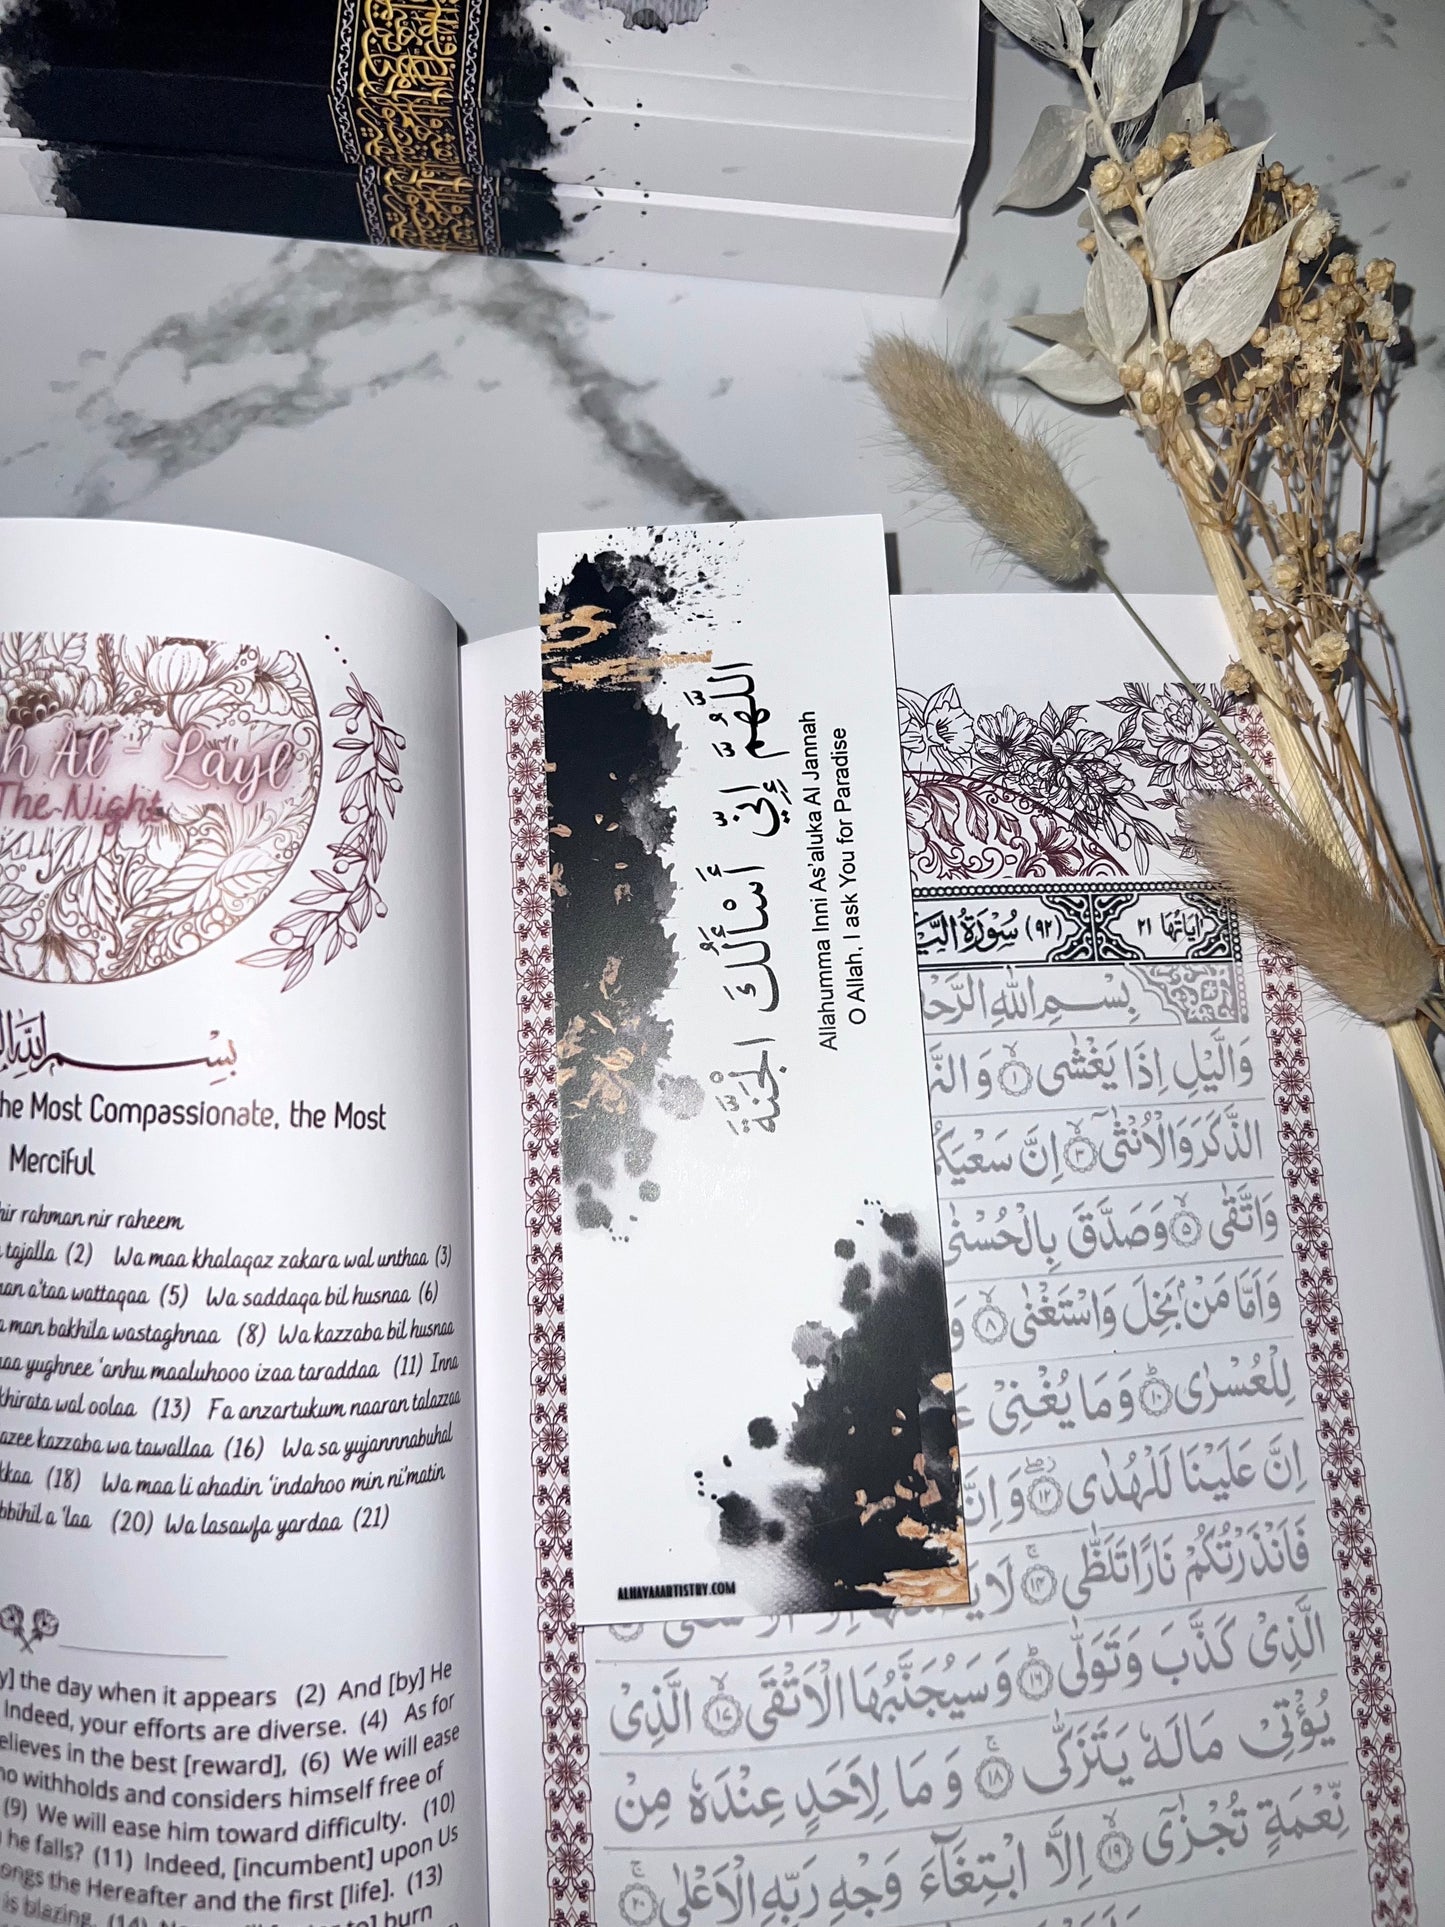 h Al - Layl
The Night
بِسْمِ اللّٰهِ
he Most Compassionate, the Most
Merciful
hir rahman nir raheem
tajalla (2) Wa maa khalaqaz zakara wal unthaa (3)
an a'taa wattaqaa (5) Wa saddaqa bil husnaa (6)
man bakhila wastaghnaa (8) Wa kazzaba bil husnaa
aa yughnee 'anhu maaluhooo izaa taraddaa (11) Inna
khirata wal oolaa (13) Fa anzartukum naaran talazzaa
azee kazzaba wa tawallaa (16) Wa sa yujannnabuhal
kkaa (18) Wa maa li ahadin 'indahoo min ni'matin
bbihil a 'laa (20) Wa lasawfa yardaa (21)
y] the day when it appears (2) And [by] He
Indeed, your efforts are diverse. (4) As for
elieves in the best [reward], (6) We will ease
ho withholds and considers himself free of
(9) We will ease him toward difficulty. (10)
he falls? (11) Indeed, [incumbent] upon Us
ongs the Hereafter and the first [life]. (13)
is blazing. (14)
burn
اللَّهُمَّ إِنِّي أَسْأَلُكَ الْجَنَّةَ
Allahumma Inni As'aluka Al Jannah
O Allah, I ask You for Paradise
ALHAYAAARTISTRY.COM
اٰيَاتُهَا ٢١ (٩٢) سُوْرَةُ الَّيْ
بِسْمِ اللّٰهِ الرَّحْ
وَالَّيْلِ اِذَا يَغْشٰى ١ وَالنَّ
الذَّكَرَ وَالْاُنْثٰى ٣ اِنَّ سَعْيَكُ
وَاتَّقٰى ٥ وَصَدَّقَ بِالْحُسْنٰى
وَاَمَّا مَنْۢ بَخِلَ وَاسْتَغْنٰى ٨ وَ
لِلْعُسْرٰى ١٠ وَمَا يُغْنِيْ عَ
اِنَّ عَلَيْنَا لَلْهُدٰى ١٢ وَاِنَّ
فَاَنْذَرْتُكُمْ نَارًا تَلَظّٰى ١٤ لَا
الَّذِيْ كَذَّبَ وَتَوَلّٰى ١٦ وَسَيُجَنَّبُهَا الْاَتْقَى ١٧ الَّذِيْ
يُؤْتِيْ مَالَهٗ يَتَزَكّٰى ١٨ وَمَا لِاَحَدٍ عِنْدَهٗ مِنْ
نِّعْمَةٍ تُجْزٰٓى ١٩ اِلَّا ابْتِغَآءَ وَجْهِ رَبِّهِ الْاَعْلٰى ٢٠